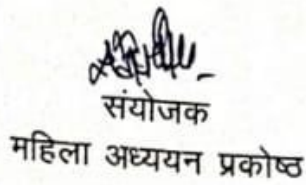 संयोजक
महिला अध्ययन प्रकोष्ठ